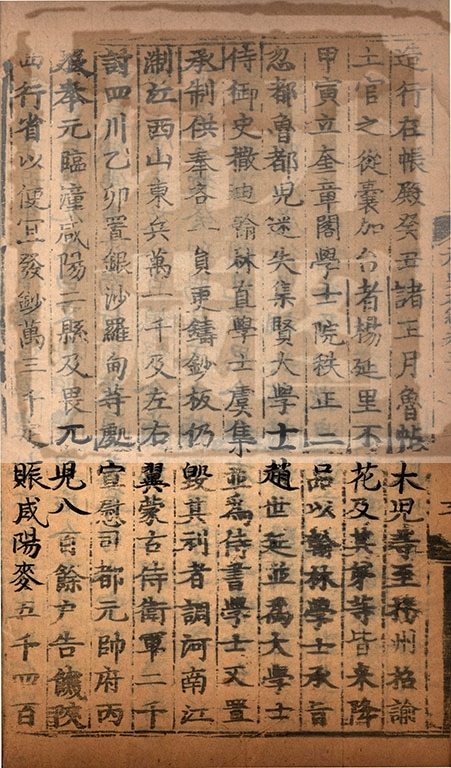 造行在帳殿癸丑諸王月魯帖木児等至播州招諭
土官之從囊加台者楊延里不花及其弟等皆来降
甲寅立奎章閣學士院秩正二品以翰林學士承旨
忽都魯都児迷失集賢大學士趙世延並為大學士
侍御史撒迪翰林直學士虞集並為侍書學士又置
承制供奉各一員更鑄鈔板仍毀其刓者調河南江
浙江西山東兵萬一千及左右翼蒙古侍衛軍二千
討四川乙卯置銀沙羅甸等處宣慰司都元帥府丙
辰奉元臨潼咸陽二縣及畏兀児八百餘户告饑陝
西行省以便宜發鈔萬三千賑咸陽麥五千四百